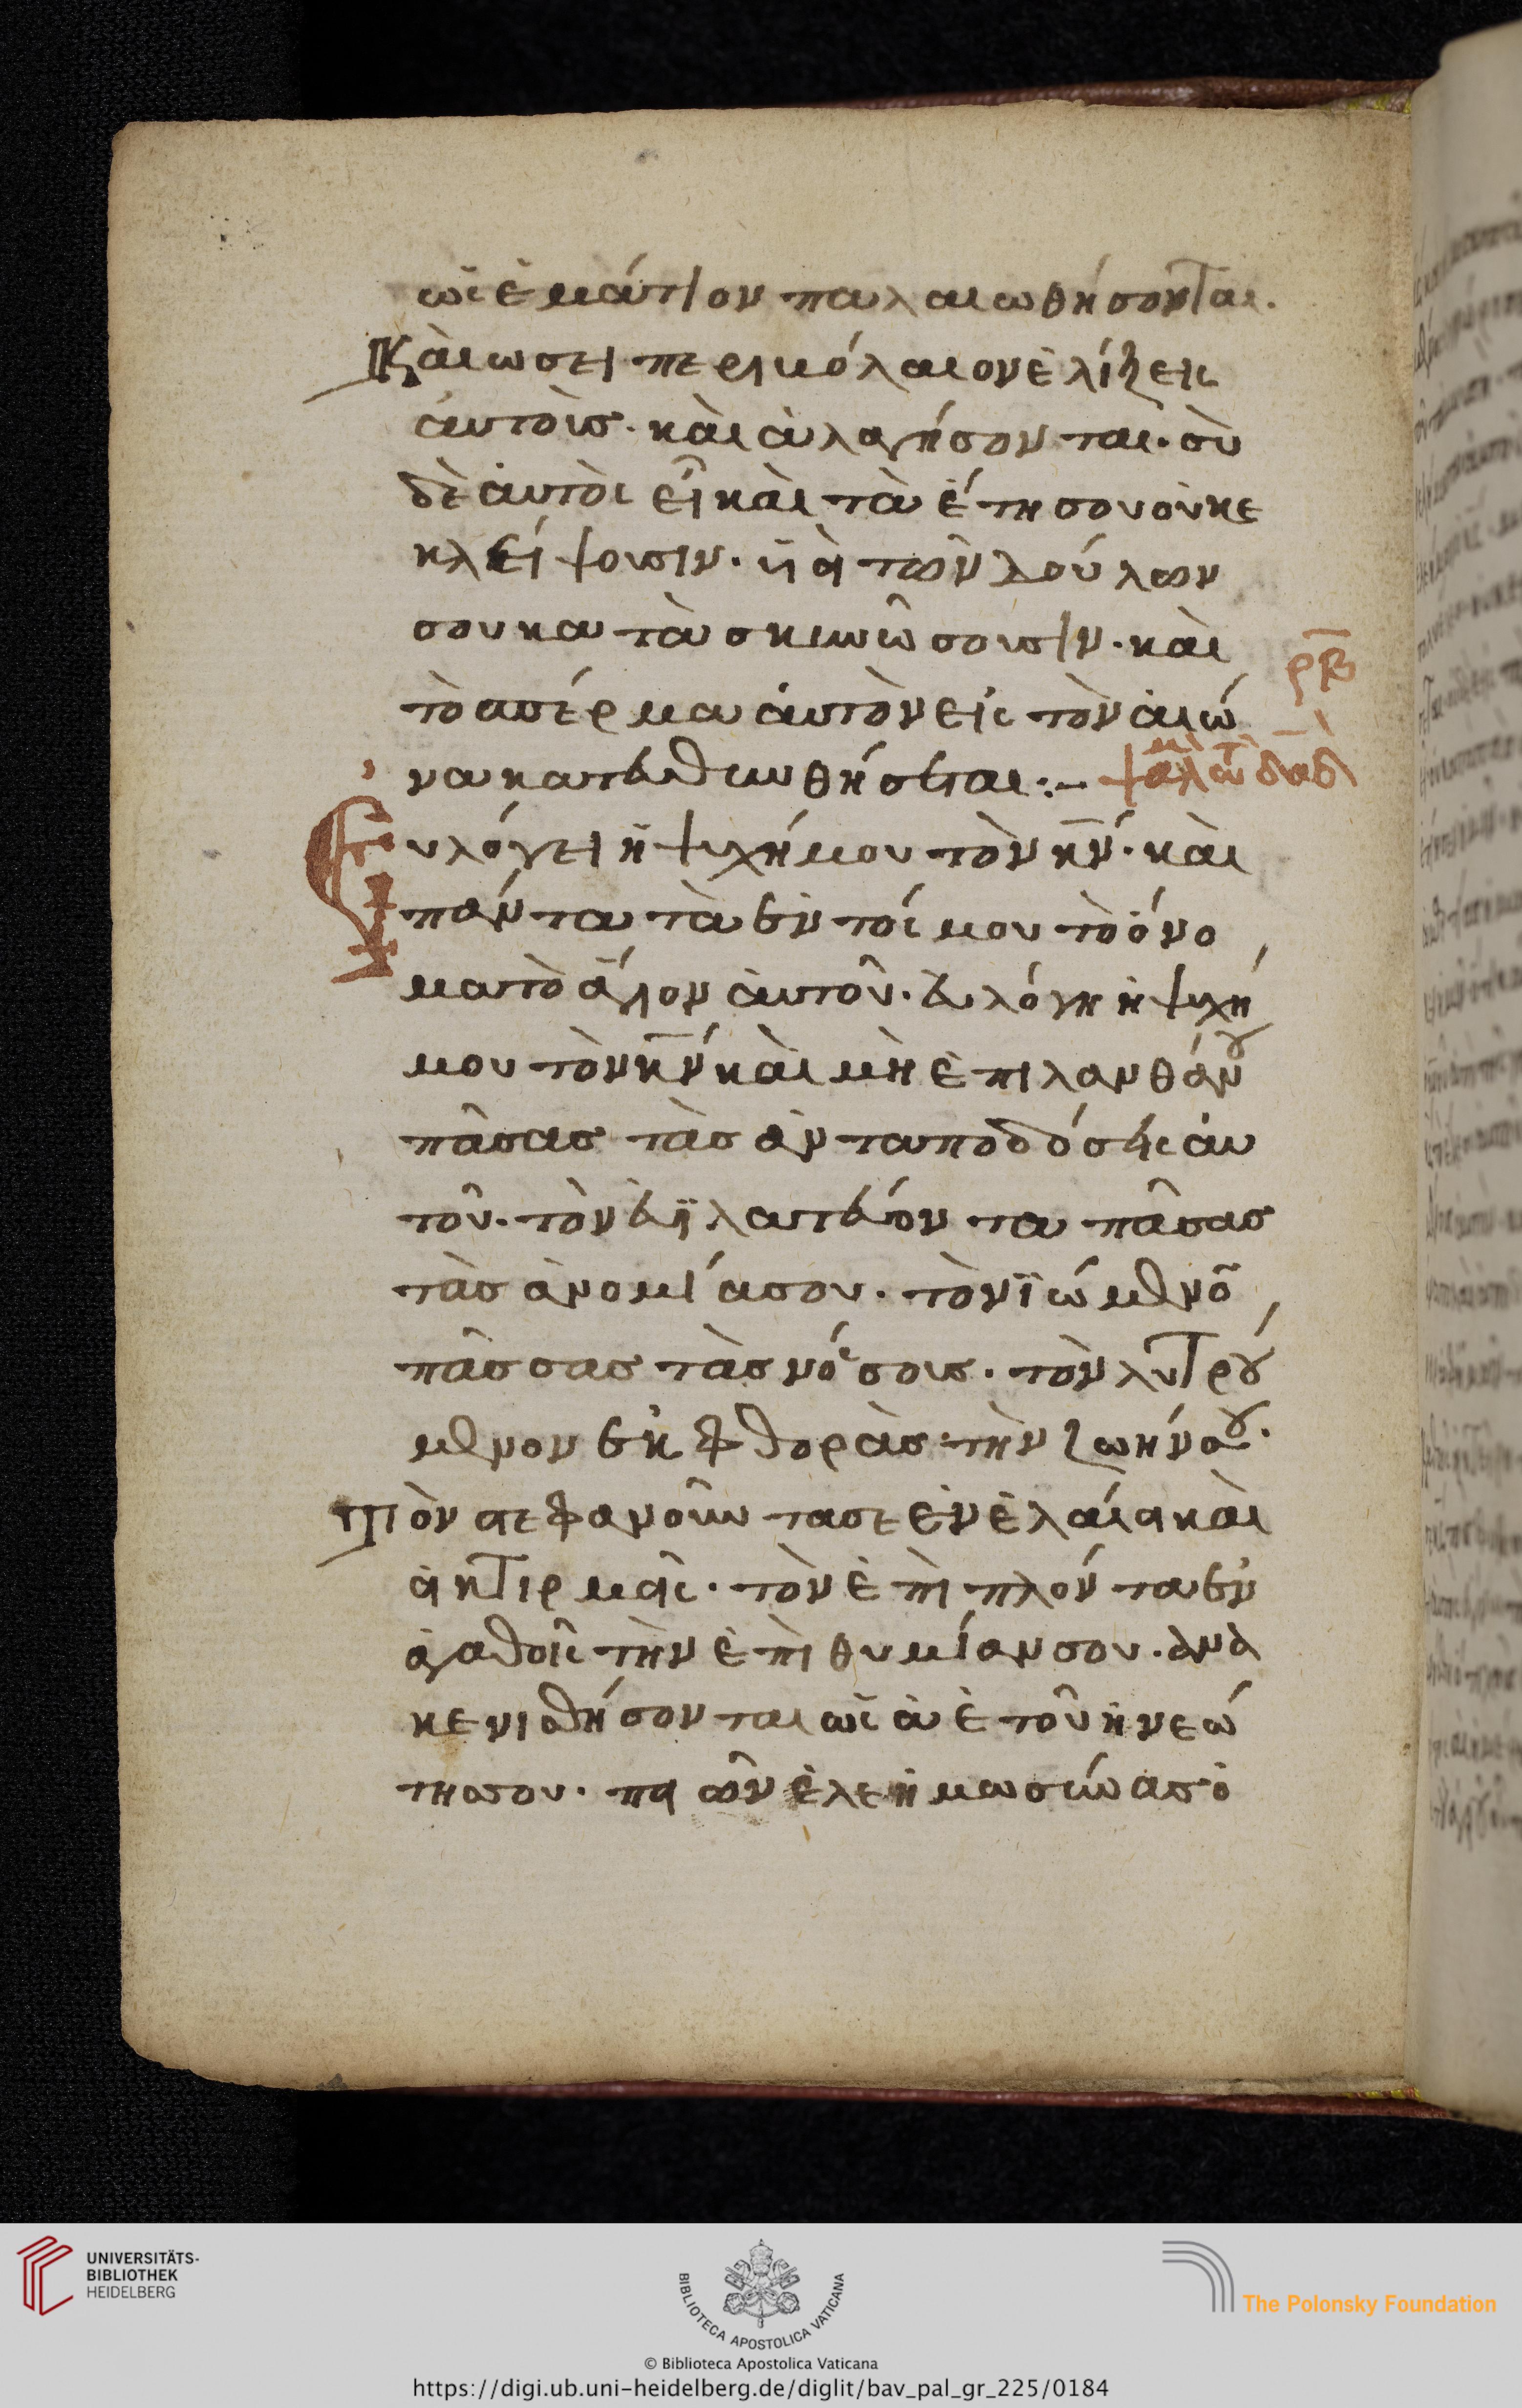 ὡς ἐμάτιον παλαιωθήσονται.
Καὶ ὡσεὶ περικόλαιον ἐλίζεις
ἀυτοὺς. καὶ ἀλαγήσονται. σὺ
δὲ ἀυτὸς εἶ καὶ τὰ ἔτη σου οὐκ ε
κλείψουσιν. ϋἱ τῶν δούλων
σου κατὰσκινῶσουσιν. καὶ
τὸ σπέρμα ἀυτὸν εἰς τὸν ἀιώ
να κατευθυνθήσεται:–
ρβ
ψαλμὸ τῶ δαδ
Ευλόγει ἡ ψυχή μου τὸν κν. καὶ
πάντα τὰ ἐντός μου τὸ ὄνο
μα τὸ ἅγιον ἀυτοῦ. ἐυλόγη ἡ ψυχή
μου τὸν κν καὶ μὴ ἐπιλανθάνου
πᾶσας τὰς ἀνταποδόσεις ἀυ
τοῦ. τὸν ἐυϊλατεύοντα πᾶσας
τὰς ἀνομίας σου. τὸν ϊώμενο
πᾶσσας τὰς νόσους. τὸν λυτρού
μενον ἐκ φθορὰς τὴν ζωήν σου.
Τὸν στεφανοῦντα σε ἐν ἐλαία καὶ
οἰκτιρμοῖς. τὸν ἐπὶπλόντα ἐν
ἀγαθοῖς τὴν ἐπὶθυμίαν σου. ἀνα
κενιθήσονται ὡς ἀετοῦ ἡ νεώ
της σου. ποιῶν ἐλεημωσύνας ὁ
UNIVERSITÄTS-
BIBLIOTHEK
HEIDELBERG
BIBLIOTECA APOSTOLICA VATICANA
The Polonsky Foundation
© Biblioteca Apostolica Vaticana
https://digi.ub.uni-heidelberg.de/diglit/bav_pal_gr_225/0184